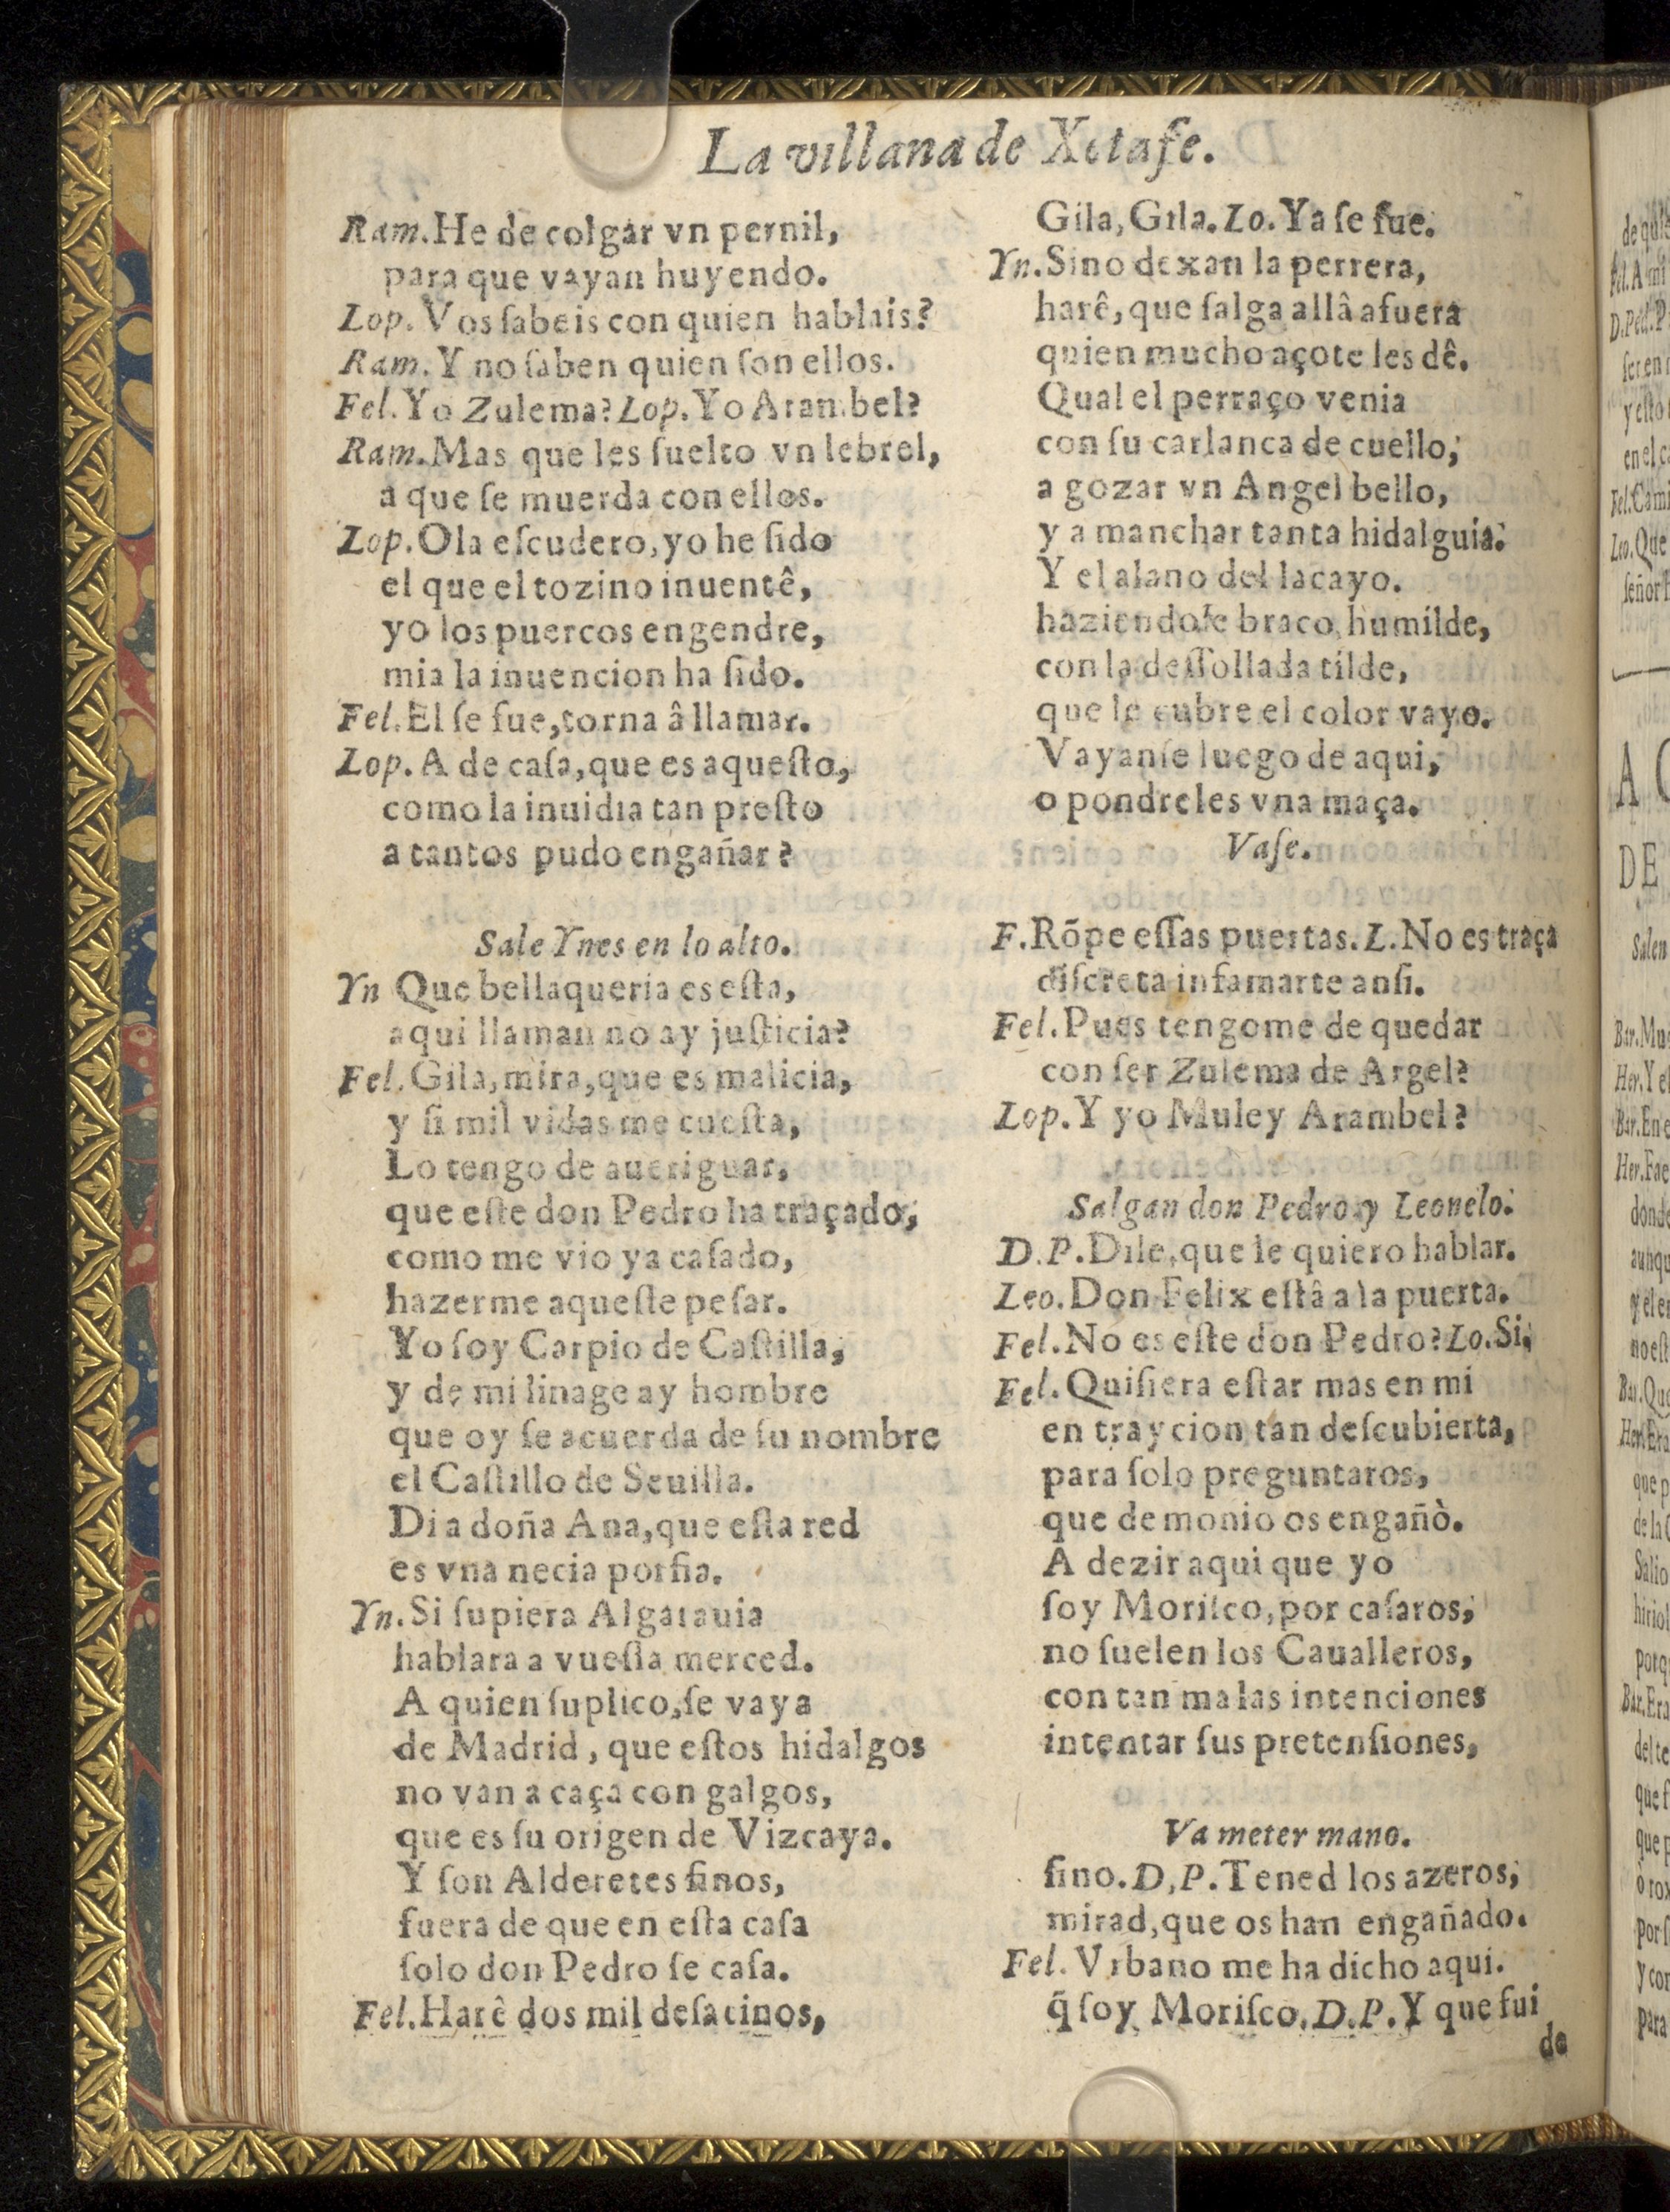 La villana de Xetafe.
Ram.He de colgar vn pernil,
para que vayan huyendo.
Lop. Vos ſabeis con quien hablais?
Ram. Y no ſaben quien ſon ellos.
Fel.Yo Zulema? Lop.Yo Arambel?
Ram.Mas que les ſuelto vn lebrel,
a que ſe muerda con ellos.
Lop.Ola eſcudero, yo he ſido
el que el tozino inuentê,
yo los puercos engendre,
mia la inuencion ha ſido.
Fel.El ſe fue, torna â llamar.
Lop. A de caſa, que es aqueſto,
como la inuidia tan preſto
a tantos pudo engañar?
Sale Ynes en lo alto.
Yn Que bellaqueria es eſta,
aqui llaman no ay juſticia?
Fel.Gila, mira, que es malicia,
y ſi mil vidas me cueſta,
Lo tengo de aueriguar,
que eſte don Pedro ha traçado,
como me vio ya caſado,
hazerme aqueſte peſar.
Yo ſoy Carpio de Caſtilla,
y de mi linage ay hombre
que oy ſe acuerda de ſu nombre
el Caſtillo de Seuilla.
Di a doña Ana, que eſta red
es vna necia porfia.
Yn.Si ſupiera Algarauia
hablara a vueſſa merced.
A quien ſuplico, ſe vaya
de Madrid, que eſtos hidalgos
no van a caça con galgos,
que es ſu origen de Vizcaya.
Y ſon Alderetes finos,
fuera de que en eſta caſa
ſolo don Pedro ſe caſa.
Fel.Harê dos mil deſatinos,
Gila, Gila. Lo. Ya ſe fue.
Yn.Sino dexan la perrera,
harê, que ſalga allâ afuera
quien mucho açote les dê.
Qual el perraço venia
con ſu carlanca de cuello,
a gozar vn Angel bello,
y a manchar tanta hidalguia.
Y el alano del lacayo.
haziendoſe braco humilde,
con la deſſollada tilde,
que le cubre el color vayo.
Vayanſe luego de aqui,
o pondreles vna maça.
Vaſe.
F.Rõpe eſſas puertas. L.No es traça
diſcreta infamarte anſi.
Fel.Pues tengome de quedar
con ſer Zulema de Argel?
Lop.Y yo Muley Arambel?
Salgan don Pedro y Leonelo.
D.P.Dile, que le quiero hablar.
Leo.Don Felix eſtâ a la puerta.
Fel.No es eſte don Pedro? Lo.Si,
Fel.Quiſiera eſtar mas en mi
en traycion tan deſcubierta,
para ſolo preguntaros,
que demonio os engañò.
A dezir aqui que yo
ſoy Moriſco, por caſaros,
no ſuelen los Caualleros,
con tan malas intenciones
intentar ſus pretenſiones,
Va meter mano.
ſino. D,P.Tened los azeros,
mirad, que os han engañado.
Fel. Vrbano me ha dicho aqui.
q̃ ſoy Moriſco. D.P.Y que fui
de